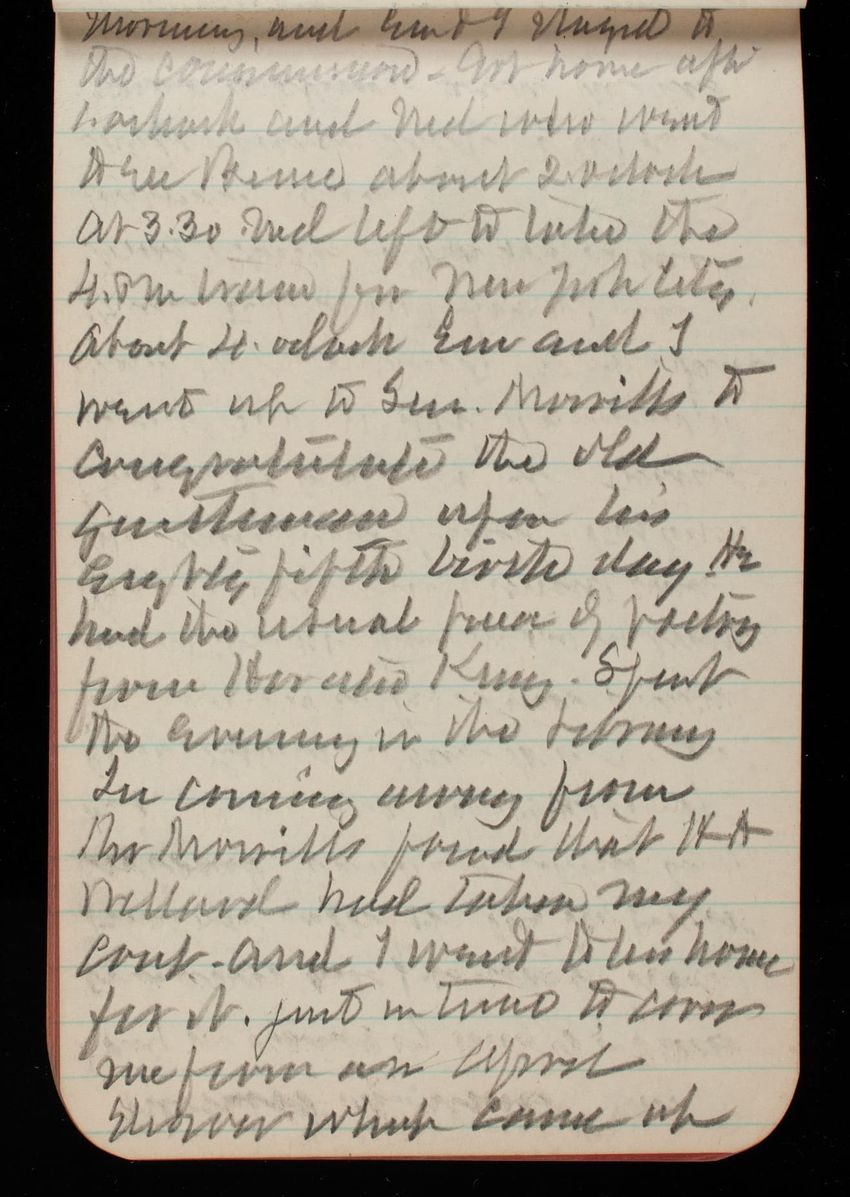 morning, and Em & I stayed to
the communion. Got home after
1. oclock and Ned who went
to see Bruce about 2. oclock
At 3.30 Ned left to take the
4. P.M. train for New York City.
About 4. oclock Em and I
went up to Sen. Morrills to
congratulate the old
gentleman upon his
eighty fifth birth day. He
had the usual piece of poetry
from Horatio King. Spent
the evening in the Library
In coming away from
Mr Morrills found that
Willard had taken my
coat. and I went to his home
for it. just in time to cover
me from an April
Shower which came up